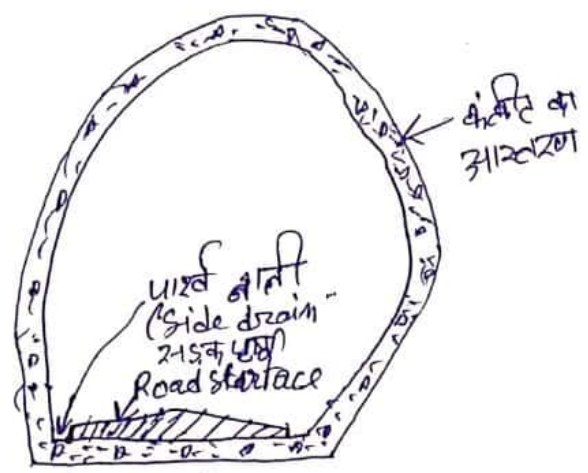 कंक्रीट का
आस्तरण
पार्श्व नाली
(Side drain"
सड़क पृष्ठ
Road Starface